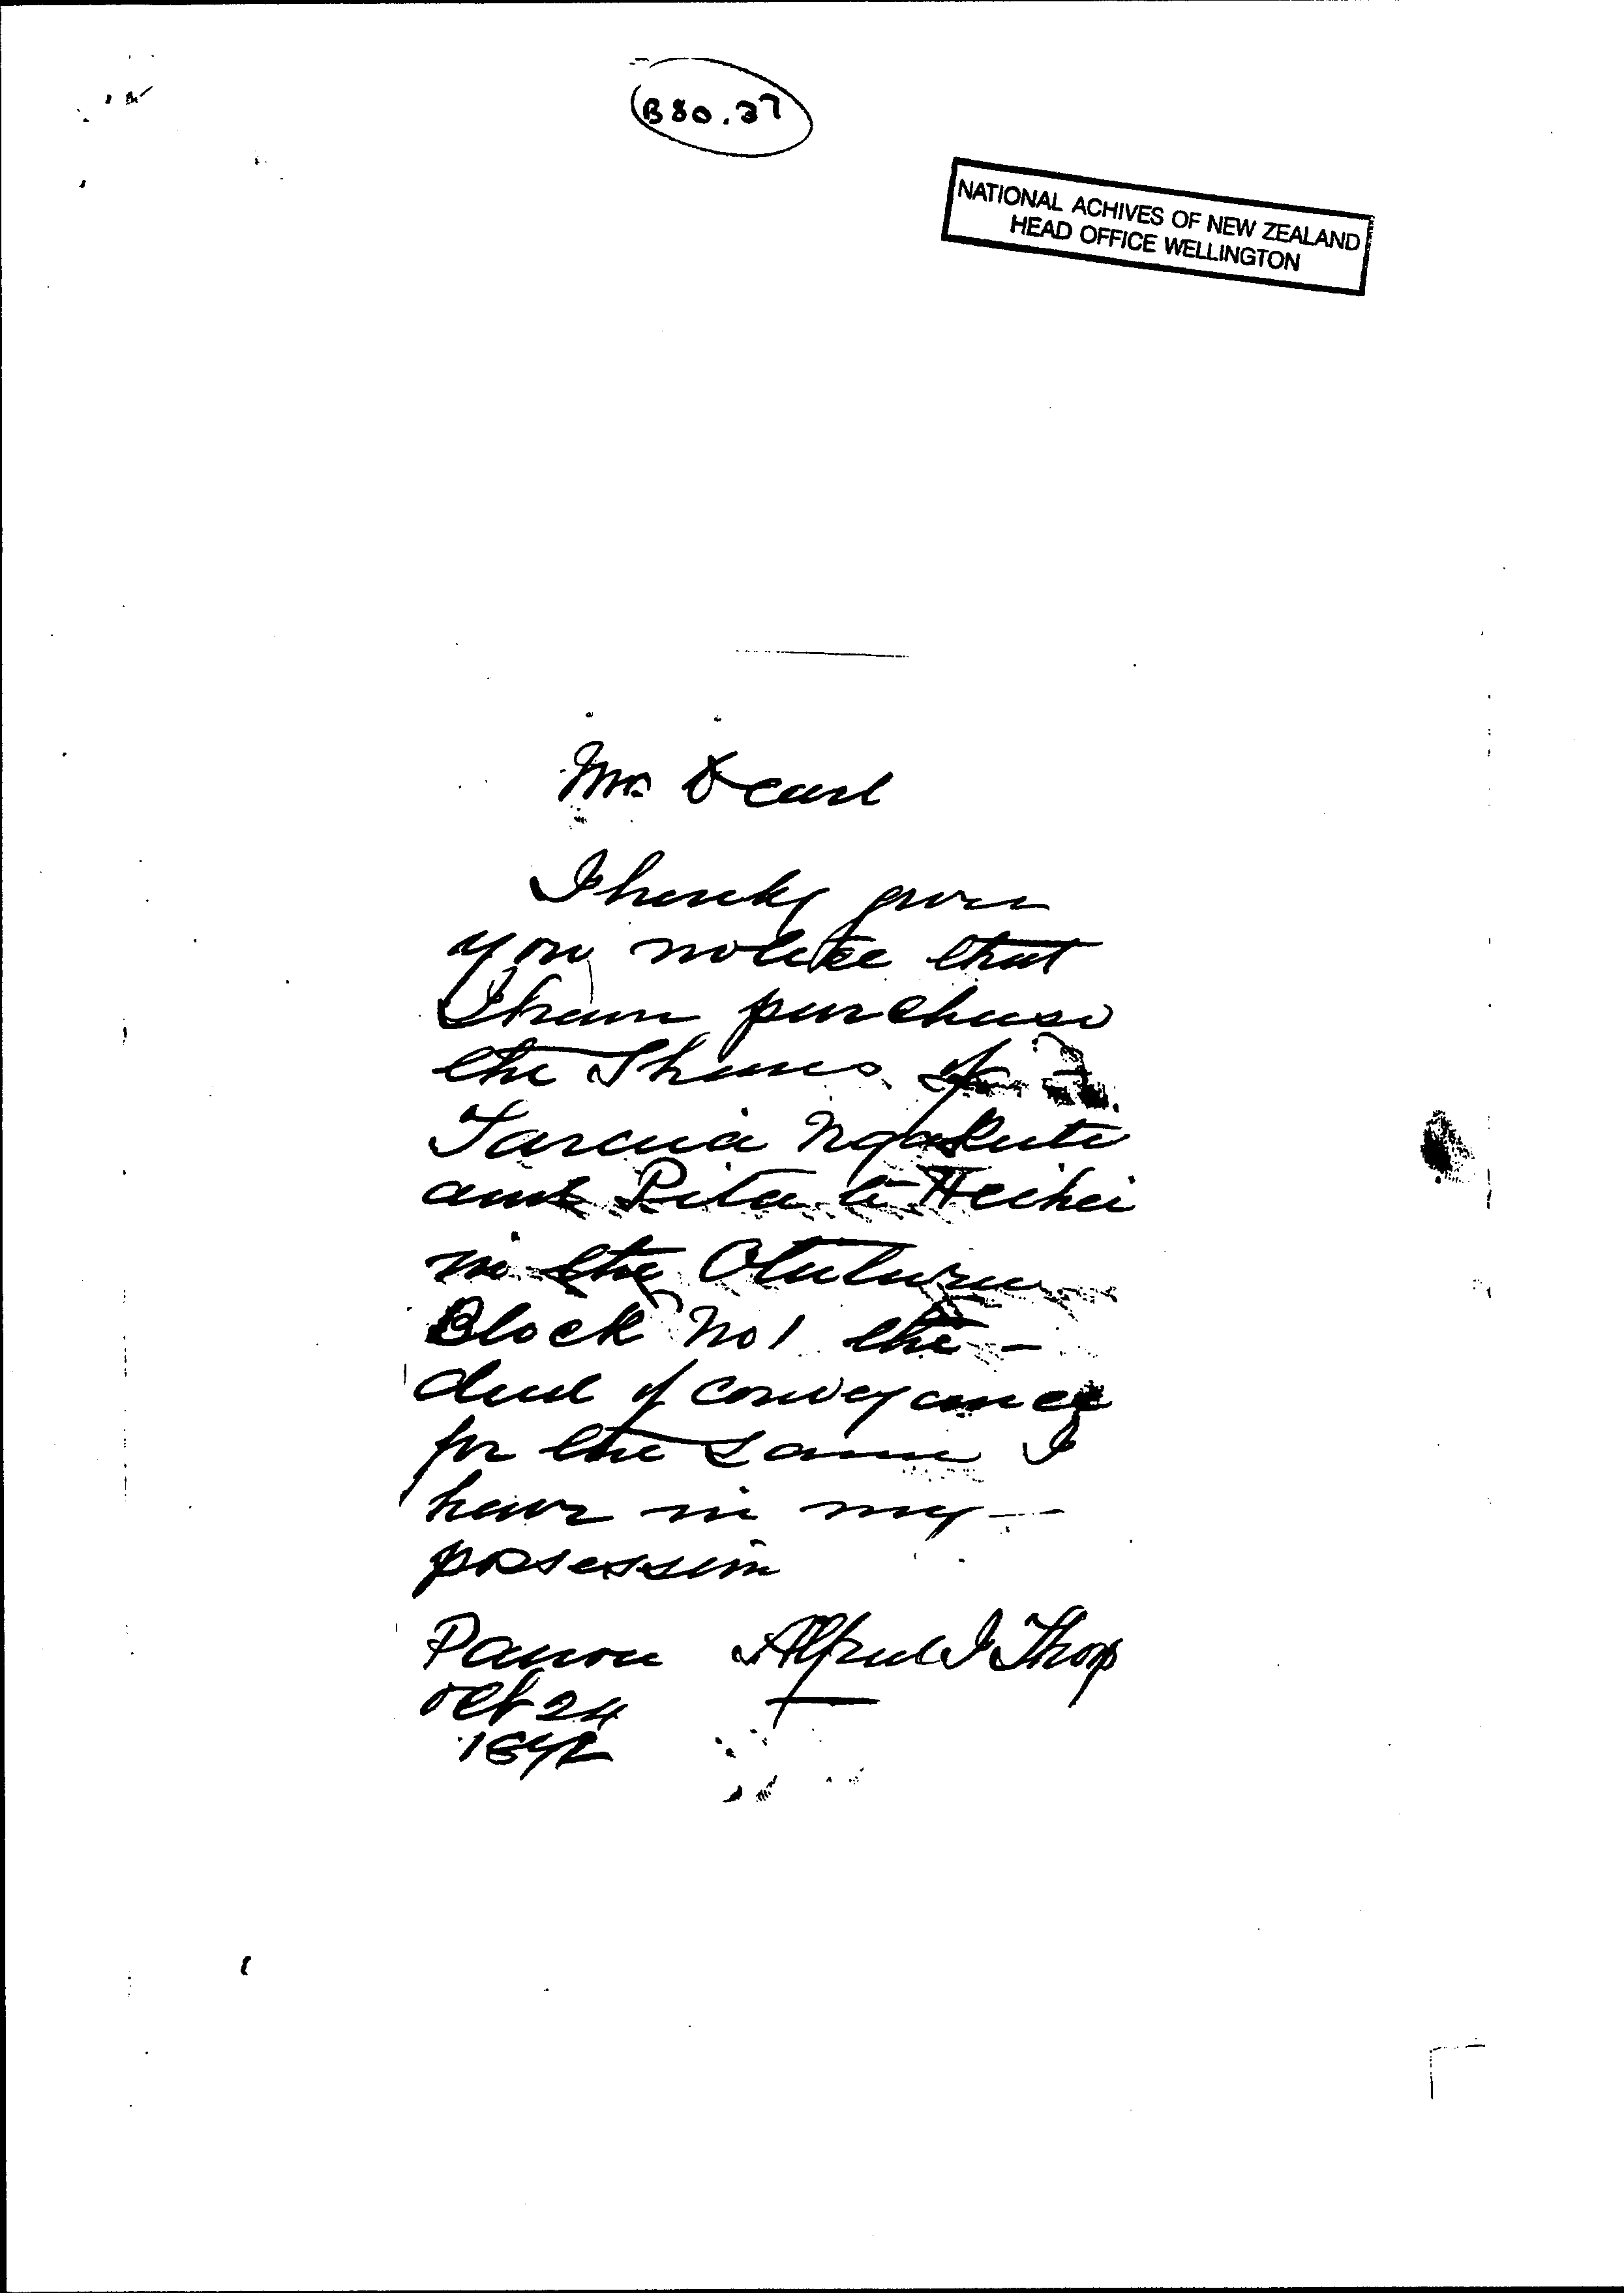 B80.37
NATIONAL ACHIVES OF NEW ZEALAND
HEAD OFFICE WELLINGTON
Mr
I hereby give
you notice that
I have purchase
the Shares of
Taraia Ngakuti
and Pita te Heihei
in the Otuturu
Block No 1 the -
deed of conveyance
for the same I
have in my -
posession
Alfred J Thorp
Oct 24
1872